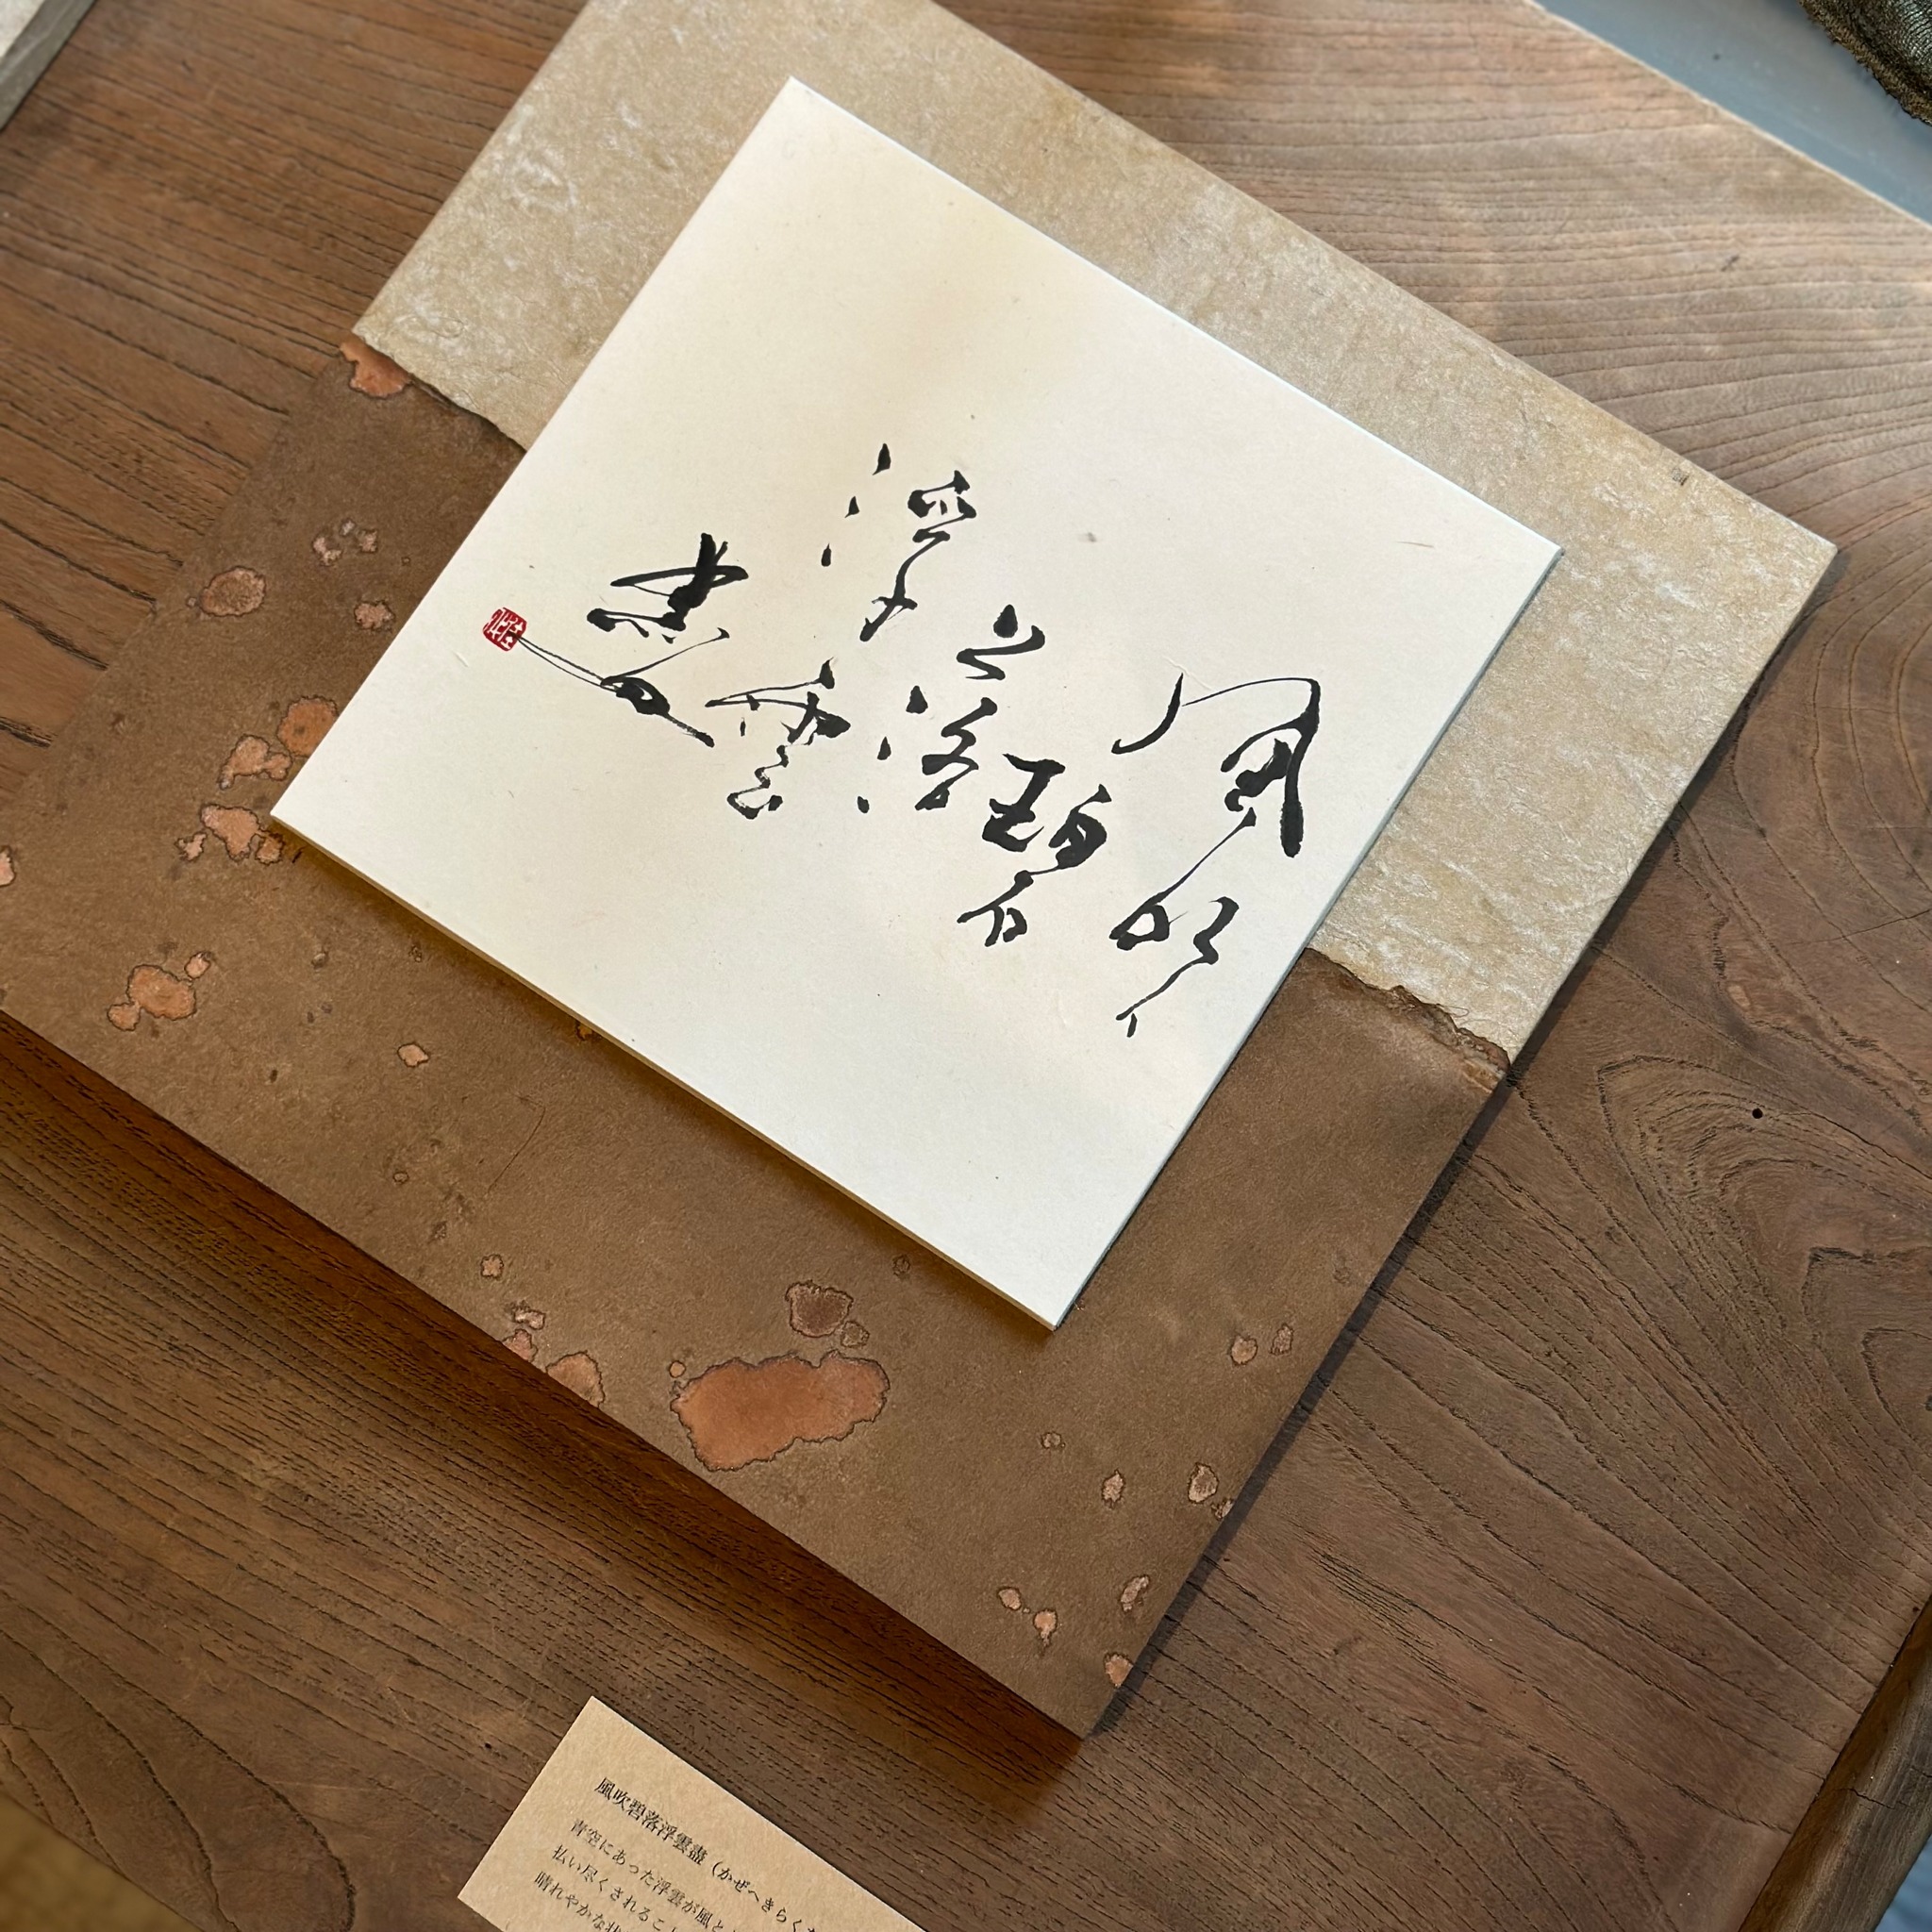 風吹
碧落
浮雲
盡
風吹碧落浮雲盡（かぜへきらく
青空にあった浮雲が風と
払い尽くされること
晴れやかな状